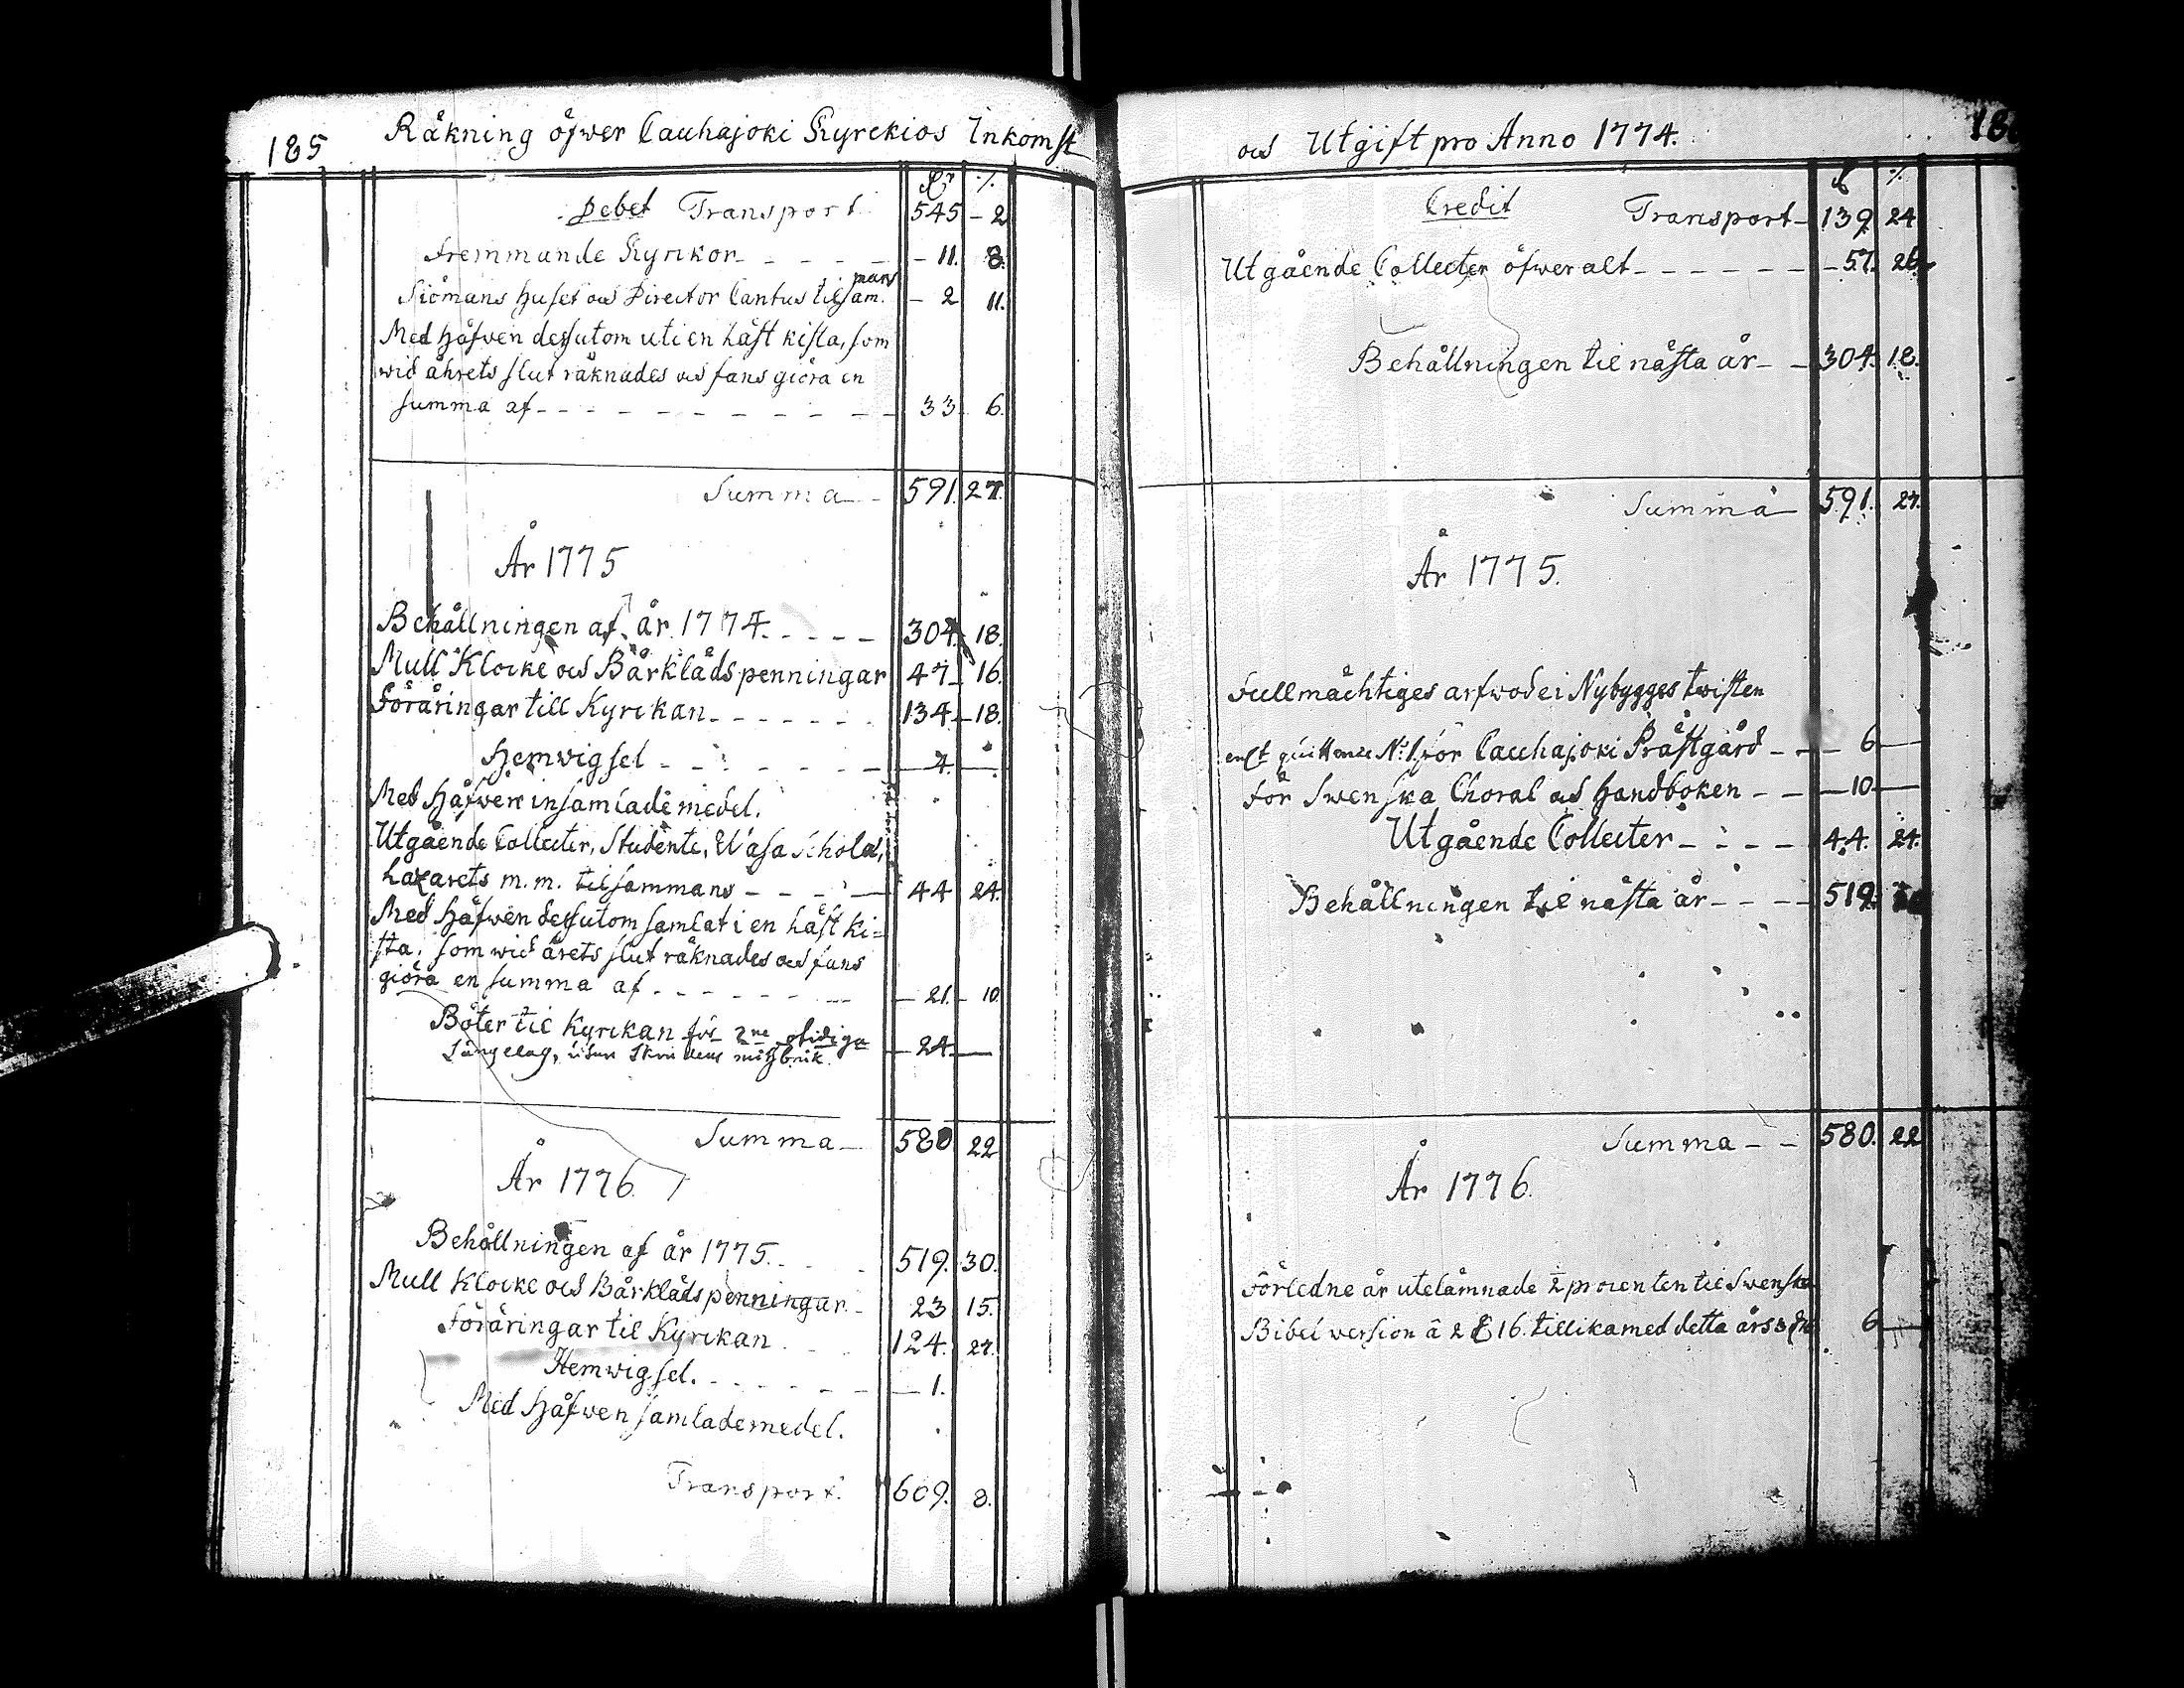 185
Räkning öfwer Cauhajoki Kyrckios Inkomst
Debet Transport 545 - 2
fremmande Kyrckor - 11. 8.
Siömans huset och Director Cantus tilsam.
mans - 2 11.
Med Håfwen dessutom uti en låst kista, som
wid åhrets slut räknades och fans giöra en
summa af - 33 6.
Summa 591. 27.
År 1775
Behållningen af år 1774. 304. 18.
Mull Klocke och Bårklädspenningar 47 16.
Föräringar till Kyrckan 134 18.
Hemwigsel
Med Håfwen insamlade medel.
Utgående Collecter, Studente, Wasa Schola,
Lazarets m. m. tilsammans 44 24.
Med Håfwen dessutom samlat i en låst ki=
sta, som wid årets slut räknades och fans
giöra en summa af - 21. 10
Böter til Kyrckan för 2ne otidiga
Sängelag, utan Skrudens missbruk. 24
Summa 580 22
År 1776.
Behållningen af år 1775. 519. 30.
Mull Klocke och Bårklädspenningar 23 15.
Föräringar til Kyrckan 124. 27.
Hemwigsel. 1.
Med Håfwen samlade medel.
Transport. 609. 8.
och Utgift pro Anno 1774.
Credit Transport 139 24
Utgående Collecter öfwer alt
Behållningen til nästa år 304. 18.
Summa 591. 27.
År 1775.
Fullmächtiges arfwode i Nybygges twisten
enl quittence No 1 för Cauhajoki Prästgård 6
för Swenska Choral och Handboken 10
Utgående Collecter 44. 24.
Behållningen til nästa år 519.
Summa 580. 22
År 1776.
Förledne år utelämnade ½ procenten til Swenska
Bibel version â 2 16. tillika med detta års 6